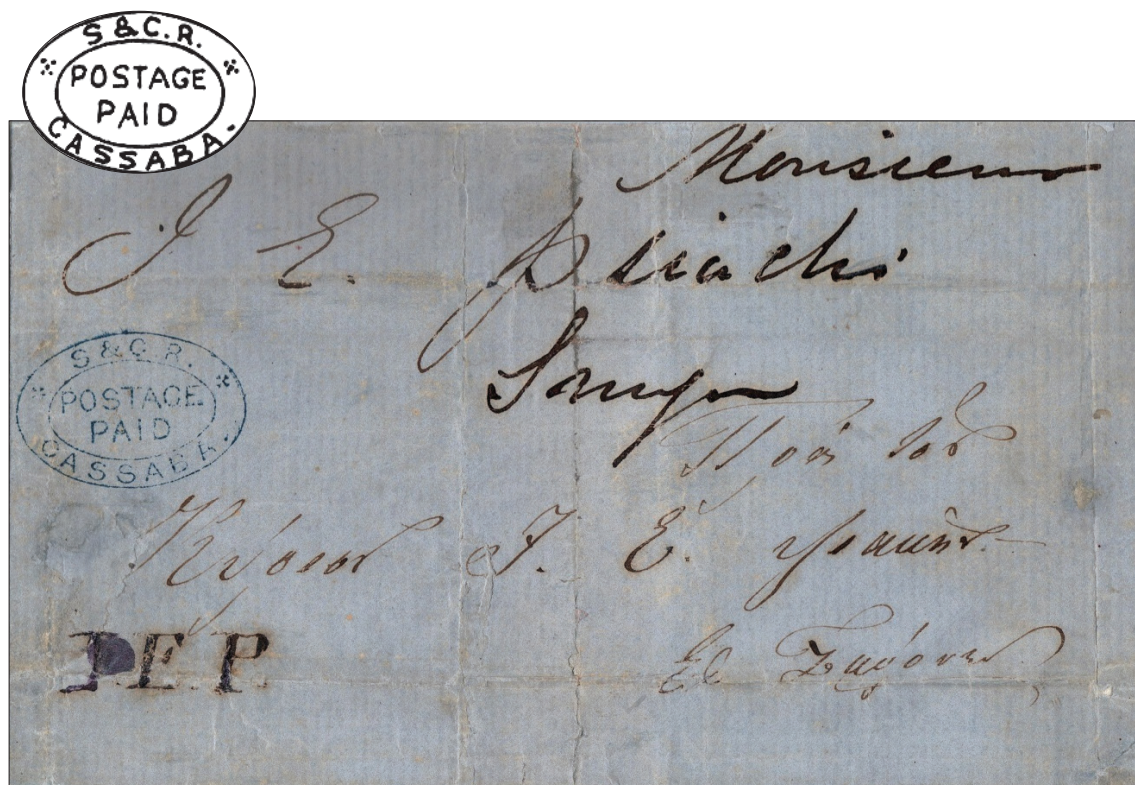 S & C. R.
POSTAGE
PAID
CASSABA.
Monsieur
J E. Psiachi
Smyr
S & C. R.
POSTAGE
PAID
CASSABA.
Πρός τόν
Κύριον Ι. Ε. ψιακην
P. E. P.
Εἰς Σμύρνην